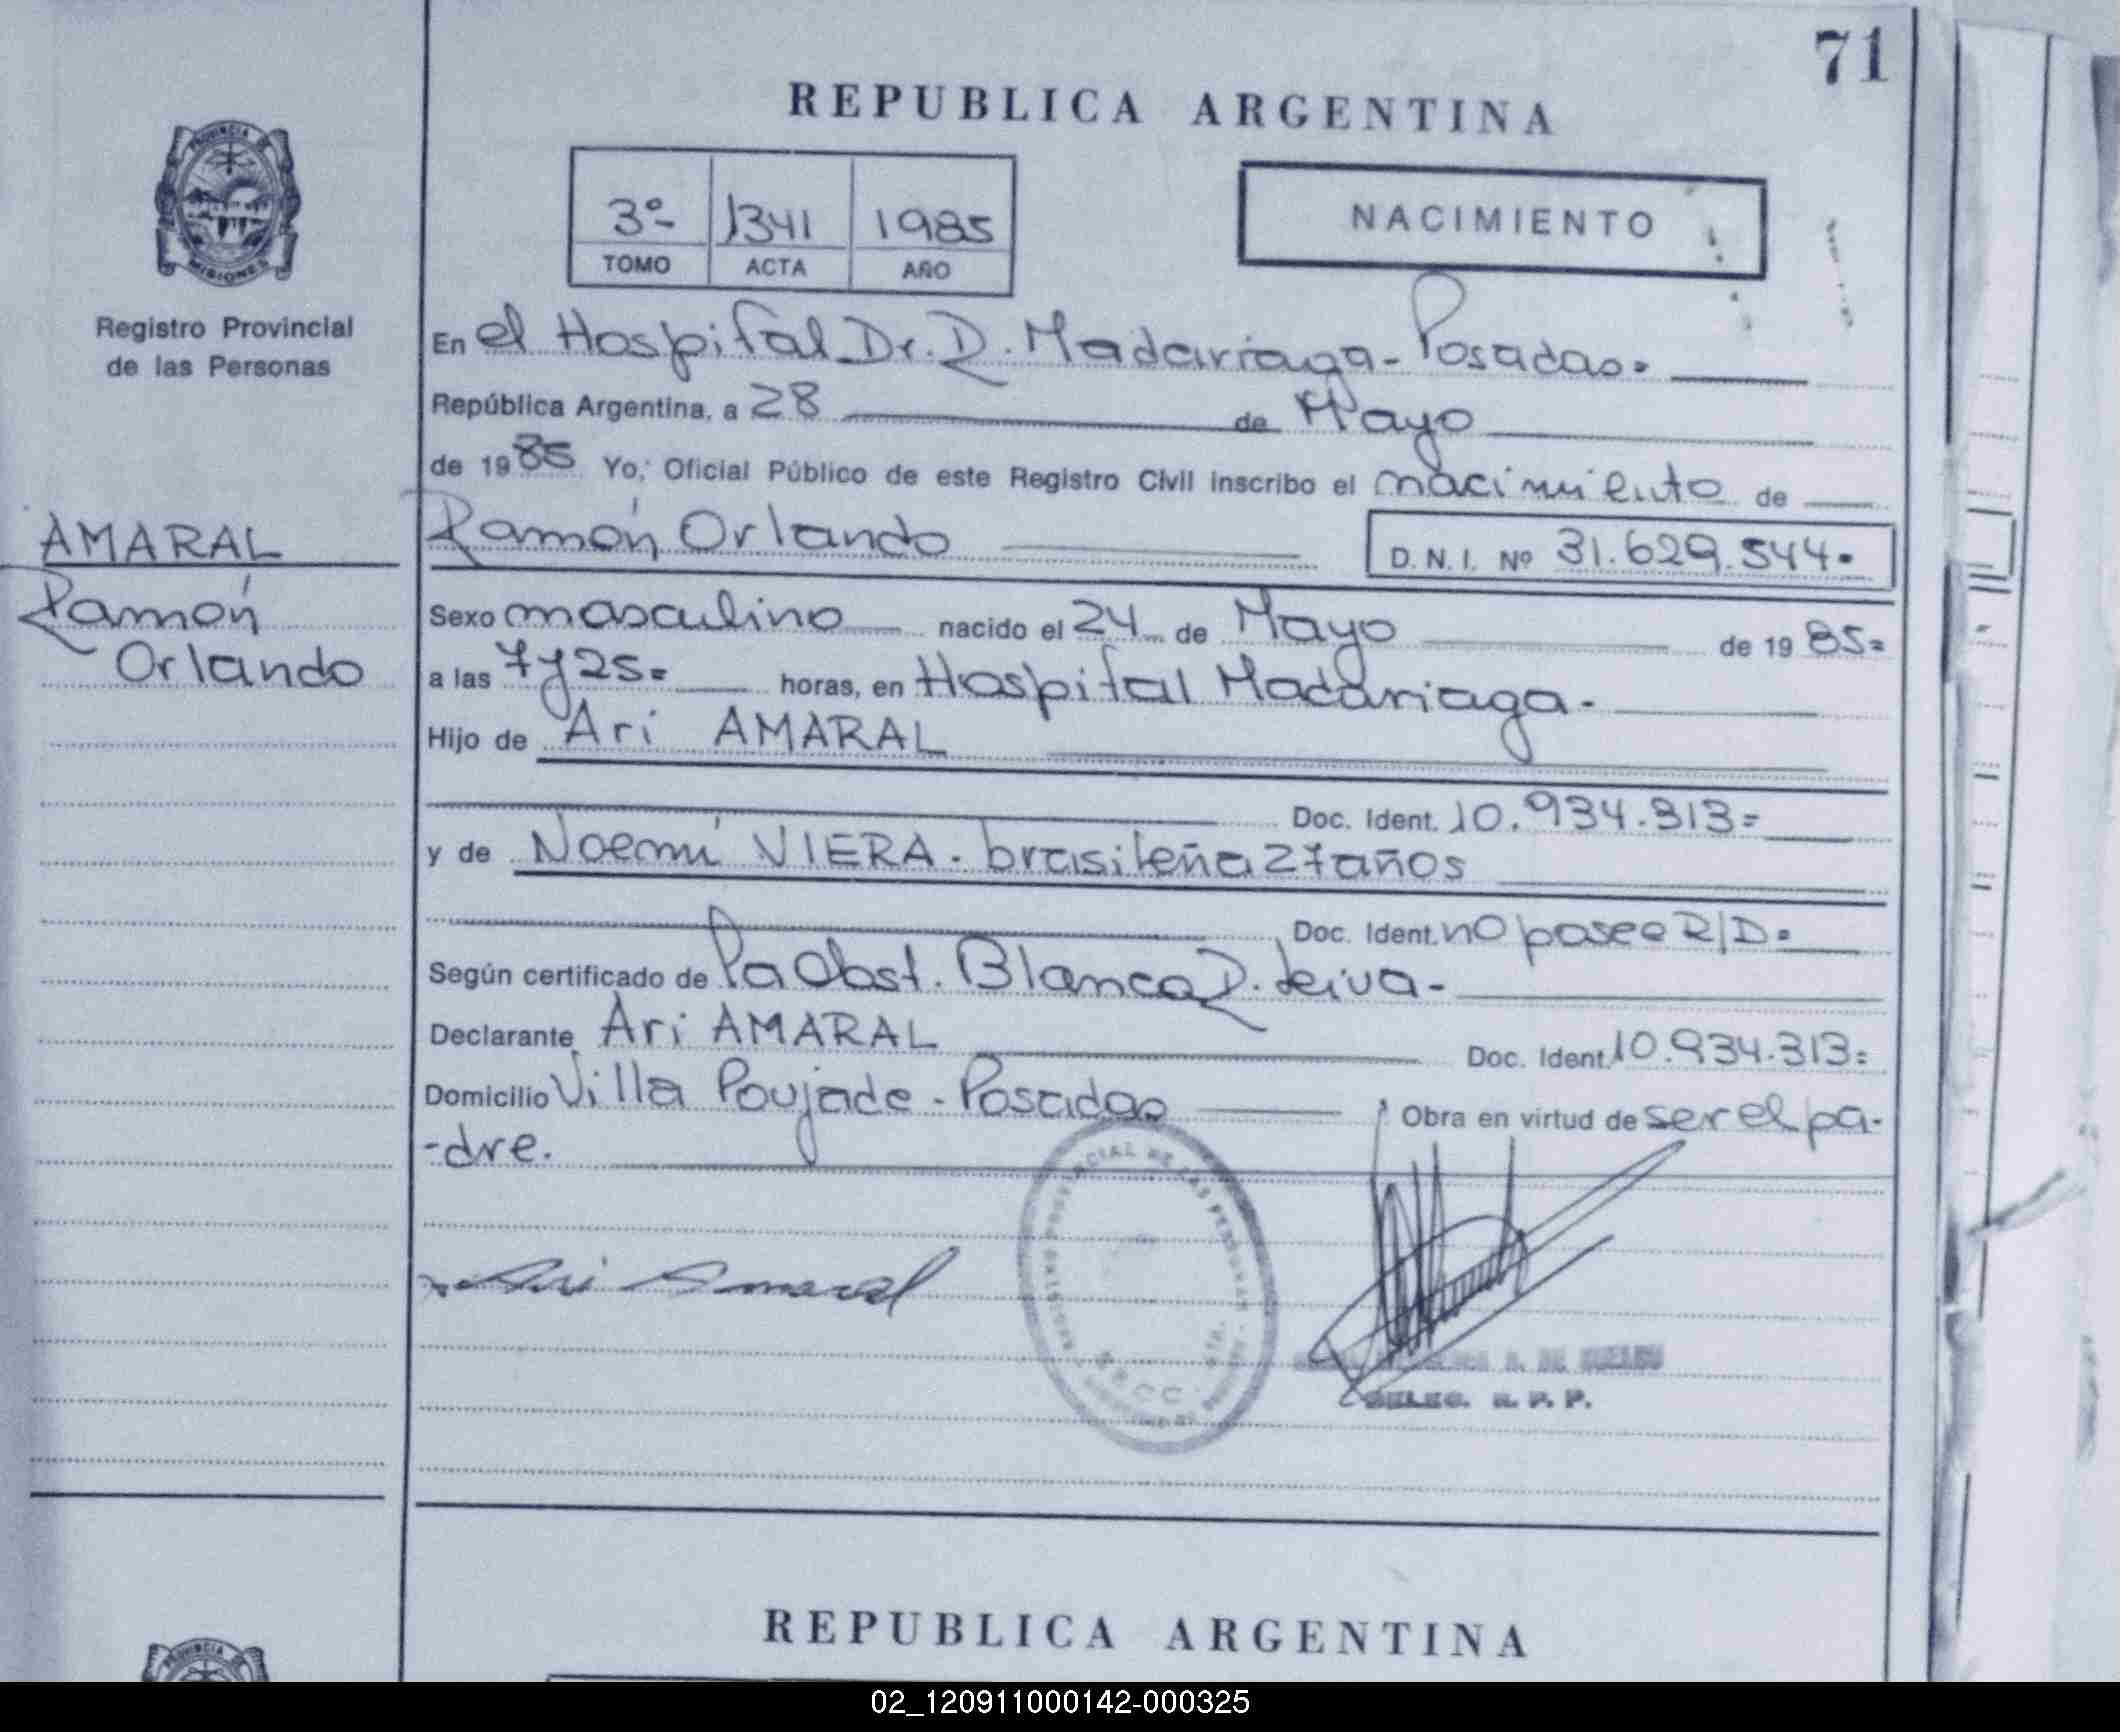 71
REPUBLICA ARGENTINA
PROVINCIA DE
MISIONES
3º 1341 1985
TOMO ACTA AÑO
NACIMIENTO
Registro Provincial
de las Personas
En el Hospital Dr. R. Madariaga - Posadas.
República Argentina, a 28 de Mayo
de 1985 Yo, Oficial Público de este Registro Civil inscribo el nacimiento de
AMARAL
Ramón
Orlando
Ramón Orlando D. N. I. Nº 31.629.544.
Sexo masculino nacido el 24 de Mayo de 1985=
a las 7 y 25= horas, en Hospital Madariaga.
Hijo de Ari AMARAL
Doc. Ident. 10.934.313=
y de Noemí VIERA. brasileña 27 años
Doc. Ident. no posee R/D.
Según certificado de Pa Obst. Blanca R. Leiva-
Declarante Ari AMARAL Doc. Ident. 10.934.313=
Domicilio Villa Poujade - Posadas Obra en virtud de ser el pa-
-dre.
Ari Amaral
PROVINCIAL DE LAS PERSONAS
R. P. P.
REPUBLICA ARGENTINA
PROVINCIA DE
02_120911000142-000325